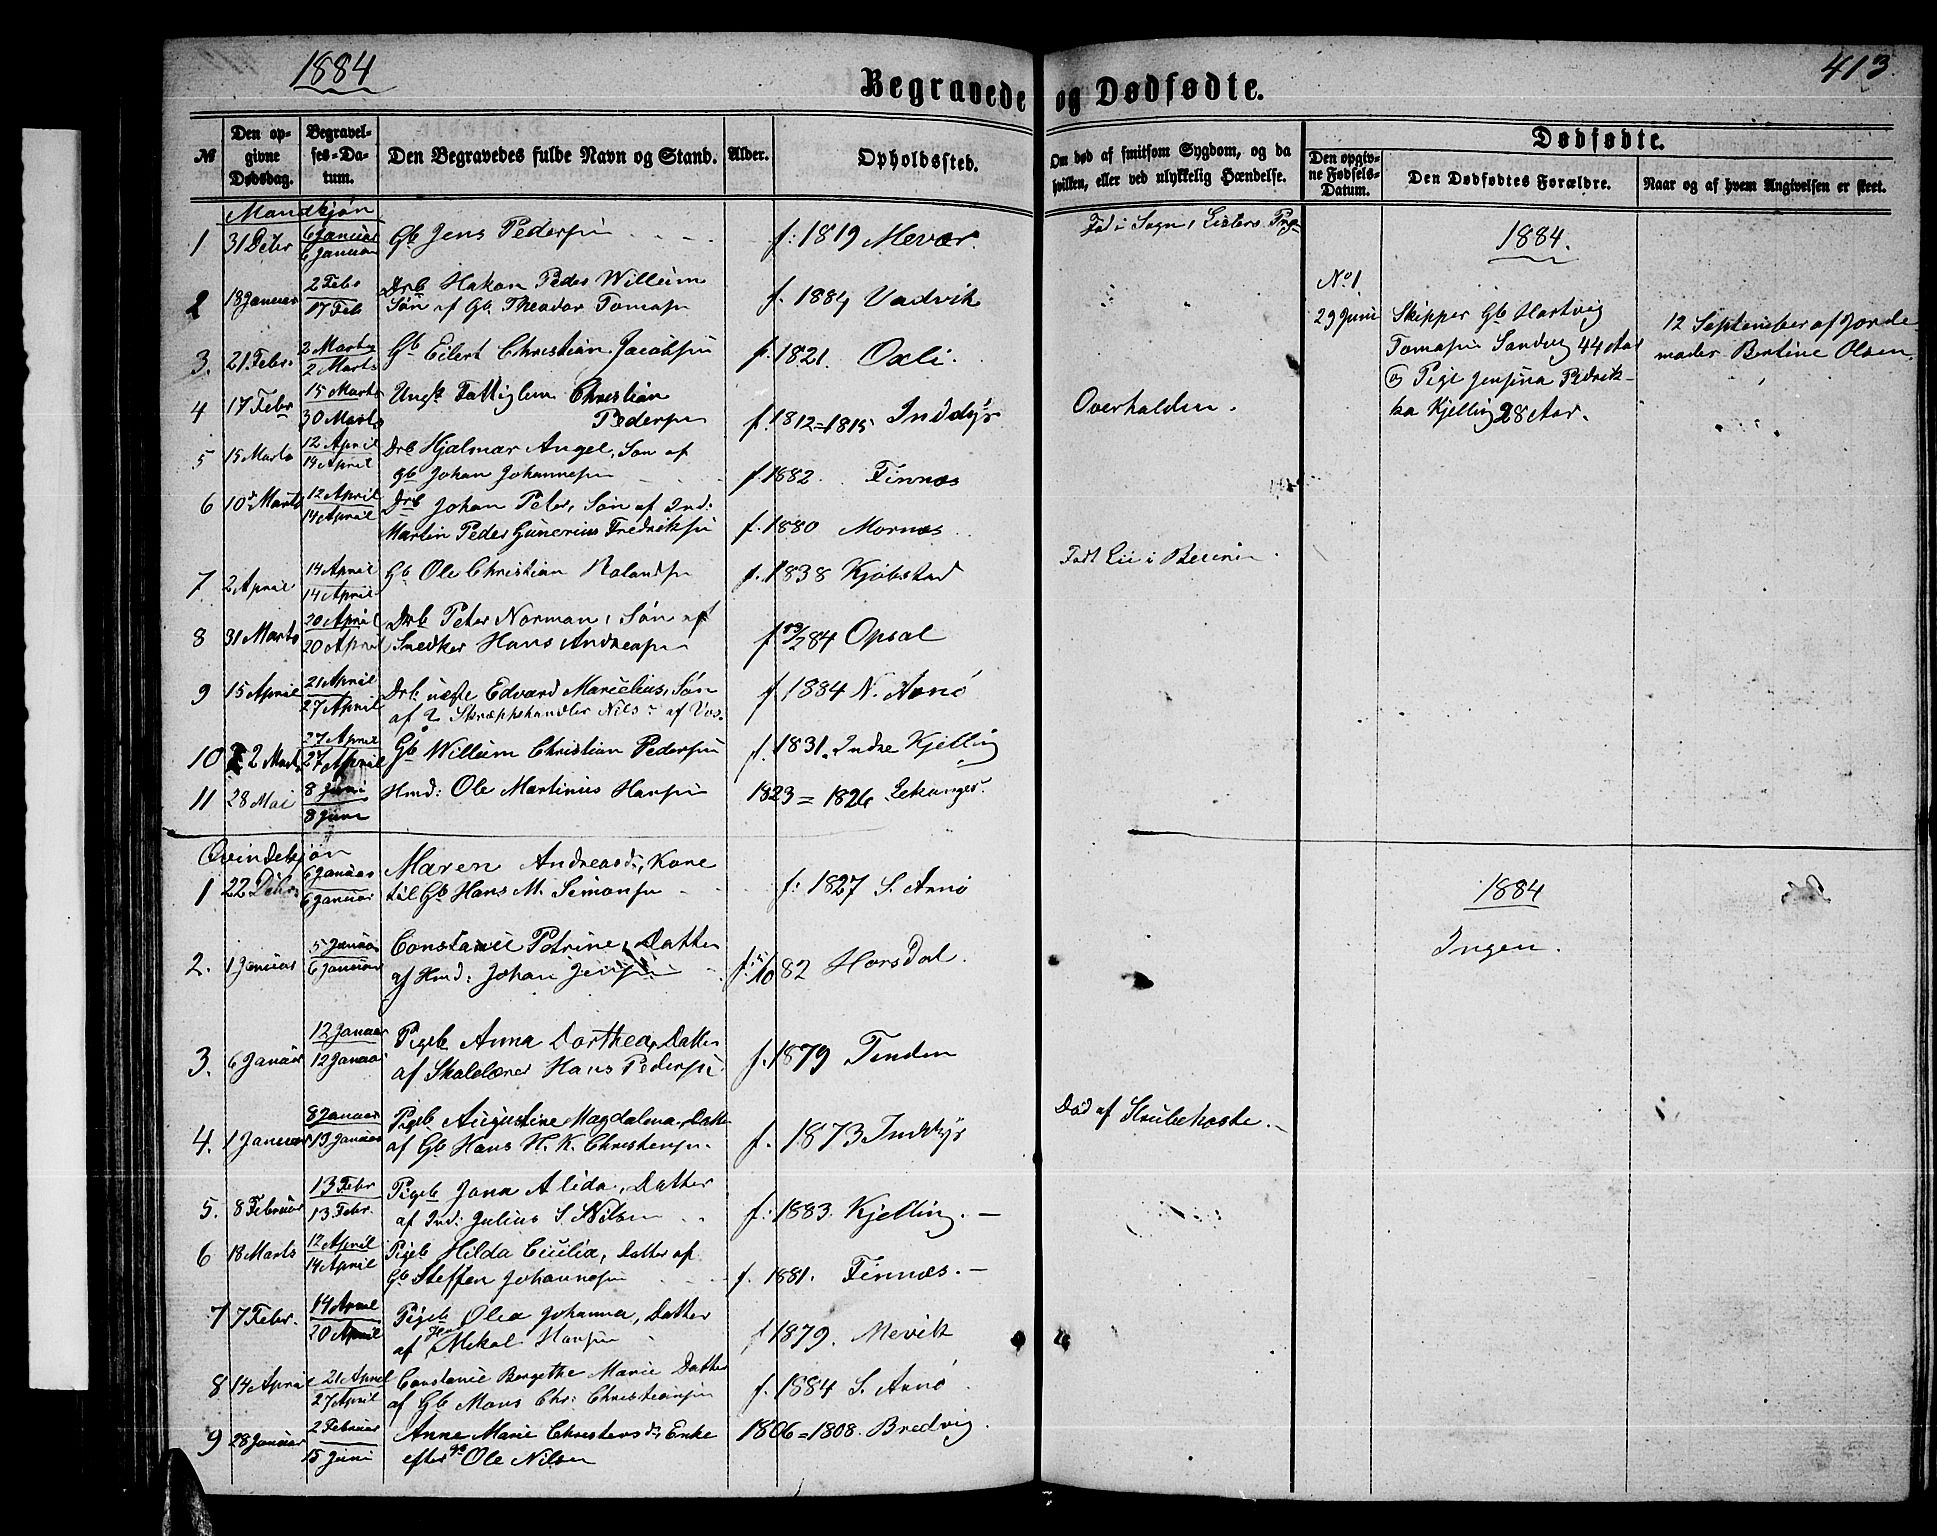 1884
413
Begravede og Dødfødte.
№
Den opgivne Dødsdag.
Begravelses-Datum.
Den Begravedes fulde Navn og Stand.
Alder.
Opholdssted.
Om død af smitsom Sygdom, og da hvilken, eller ved ulykkelig Hændelse.
Dødfødte.
Den opgivne Fødsels-Datum.
Den Dødfødtes Forældre.
Naar og af hvem Angivelsen er skeet.
Mandkjøn
1 31 Debr 6 Januar 6 Januar Gb Jens Pedersen f: 1819 Mevær.
2 18 Januar 2 Febr 17 Feb Drb Hakon Peder Willum
Søn af Gb. Theodor Tomasen f. 1884 Vadvik
3. 21 Febr. 2 Marts 2 Marts Gb Eilert Christian Jacobsen f. 1821. Oxli.
4 17 Febr 15 Marts 30 Marts Ungk Fattiglem Christian
Pedersen f. 1812=1815 Inddyr Overhalden.
5 15 Marts 12 April 14 April Drb Hjalmar Angel, Søn af
Gb Johan Johannesen f. 1882. Finnæs
6 10 Marts 12 April 14 April Drb Johan Peter, Søn af Ind:
Martin Peder Gunerius Fredriksen f. 1880 Mornæs
7. 2 April 14 April 14 April Gb Ole Christian Rolandsen f. 1838 Kjøbstad Født Lii i Beieren
8 31 Marts 20 April 20 April Drb Peter Norman, Søn af
Snedker Hans Andreasen 84 Opsal
9 15 April 21 April 27 April Drb uægte Edvard Marcelius, Søn
af Skræppehandler Nils af Vos. f. 1884 N. Arnø
10 2 Marts 27 April 27 April Gb Willum Christian Pedersen f. 1831. Indre Kjelling
11 28 Mai 8 Juni 8 Juni Hmd: Ole Martinus Hansen 1823=1826
1884.
No 1
29 Juni Skipper Gb Hartvig
Tomasen Sandvg 44 Aar
og Pige Jensina Pedrik-
ka Kjelling 28 Aar.
12 September af Jorde
moder Bertine Olsen.
Qvindekjøn
1 22 Debr. 6 Januar 6 Januar Maren Andreasd:, Kone
til Gb Hans M. Simonsen f: 1827 S. Arnø
2. 1 Januar 5 Januar 6 Januar Constance Petrine, Datter
af Hmd: Johan Jensen 82 Horsdal.
3. 6 Januar 12 Januar 12 Januar Pigeb Anna Dorthea, Datter
af Skolelærer Hans Pedersen f. 1879 Tinden
4. 1 Januar 8 Januar 13 Januar Pigeb Augustine Magdalena, Datter
af Gb Hans H. K. Christensen. f. 1873 Inddyr Død af Strubehoste.
5. 8 Februar 13 Febr 13 Febr. Pigeb Jona Alida, Datter
af Ind: Julius S. Nilsen f: 1883. Kjelling.
6 18 Marts 12 April 14 April Pigeb Hilda Cicilia, Datter af
Gb Steffen Johannesen f. 1881. Finnæs.
7 7 Febr. 14 April 20 April Pigeb Olea Johanna, Datter
af Mikal Hansen f 1879. Mevik
8 14 April 21 April 27 April Constance Bergethe Marie Datter
af Gb Mons Chr: Christiansen f. 1884 S. Arnø
9 28 Januar 2 Februar 15 Juni Anne Marie Christensd: Enke
efter Gb Ole Nilsen 1806=1808. Bredvig.
1884
Ingen.